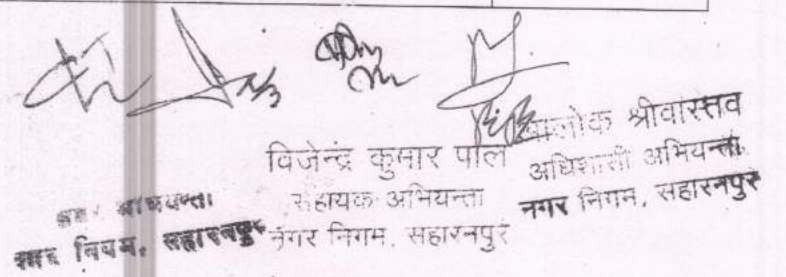 विजेन्द्र कुमार पाल
सहायक अभियन्ता
नगर निगम, सहारनपुर
आलोक श्रीवास्तव
अधिशासी अभियन्ता
नगर निगम, सहारनपुर
अभियन्ता
नगर निगम, सहारनपुर